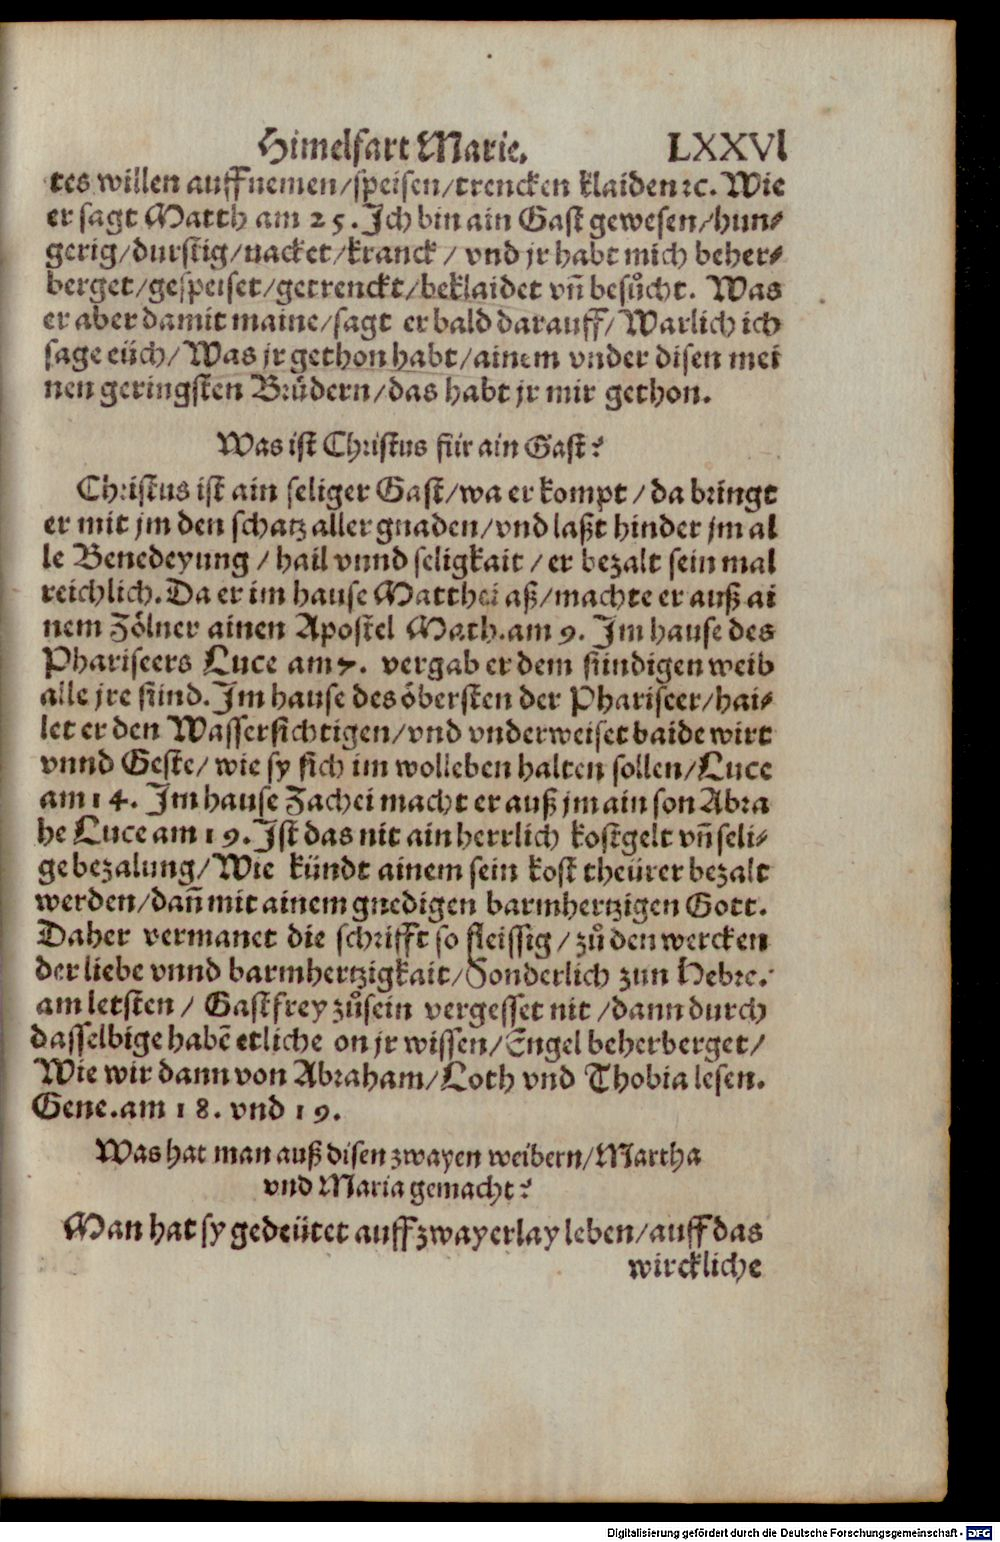 Himelfart Marie. LXXVI
tes willen auffnemen/speisen/trencken klaiden ꝛc. Wie
er sagt Matth am 25. Ich bin ain Gast gewesen/hun⸗
gerig/durstig/nacket/kranck/ vnd jr habt mich beher⸗
berget/gespeiset/getrenckt/beklaidet vñ besuͦcht. Was
er aber damit maine/sagt er bald darauff/ Warlich ich
sage eüch/ Was jr gethon habt/ainem vnder disen mei
nen geringsten Bruͤdern/das habt jr mir gethon.
Was ist Christus für ain Gast?
Christus ist ain seliger Gast/wa er kompt/da bringt
er mit jm den schatz aller gnaden/vnd laßt hinder jm al
le Benedeyung/hail vnnd seligkait/er bezalt sein mal
reichlich. Da er im hause Matthei aß/machte er auß ai
nem Zölner ainen Apostel Math. am 9. Im hause des
Phariseers Luce am 7. vergab er dem sündigen weib
alle jre sünd. Im hause des öbersten der Phariseer/hai⸗
let er den Wassersichtigen/vnd vnderweiset baide wirt
vnnd Geste/ wie sy sich im wolleben halten sollen/Luce
am 14. Im hause Zachei macht er auß jm ain son Abra
he Luce am 19. Ist das nit ain herrlich kostgelt vñ seli⸗
ge bezalung/Wie kündt ainem sein kost theürer bezalt
werden/dañ mit ainem gnedigen barmhertzigen Gott.
Daher vermanet die schrifft so fleissig/zuͦ den wercken
der liebe vnnd barmhertzigkait/Sonderlich zun Hebre.
am letsten/ Gastfrey zuͦsein vergesset nit/dann durch
dasselbige habẽ etliche on jr wissen/Engel beherberget/
Wie wir dann von Abraham/Loth vnd Thobia lesen.
Gene. am 18. vnd 19.
Was hat man auß disen zwayen weibern/Martha
vnd Maria gemacht?
Man hat sy gedeütet auff zwayerlay leben/auff das
wirckliche
Digitalisierung gefördert durch die Deutsche Forschungsgemeinschaft - DFG